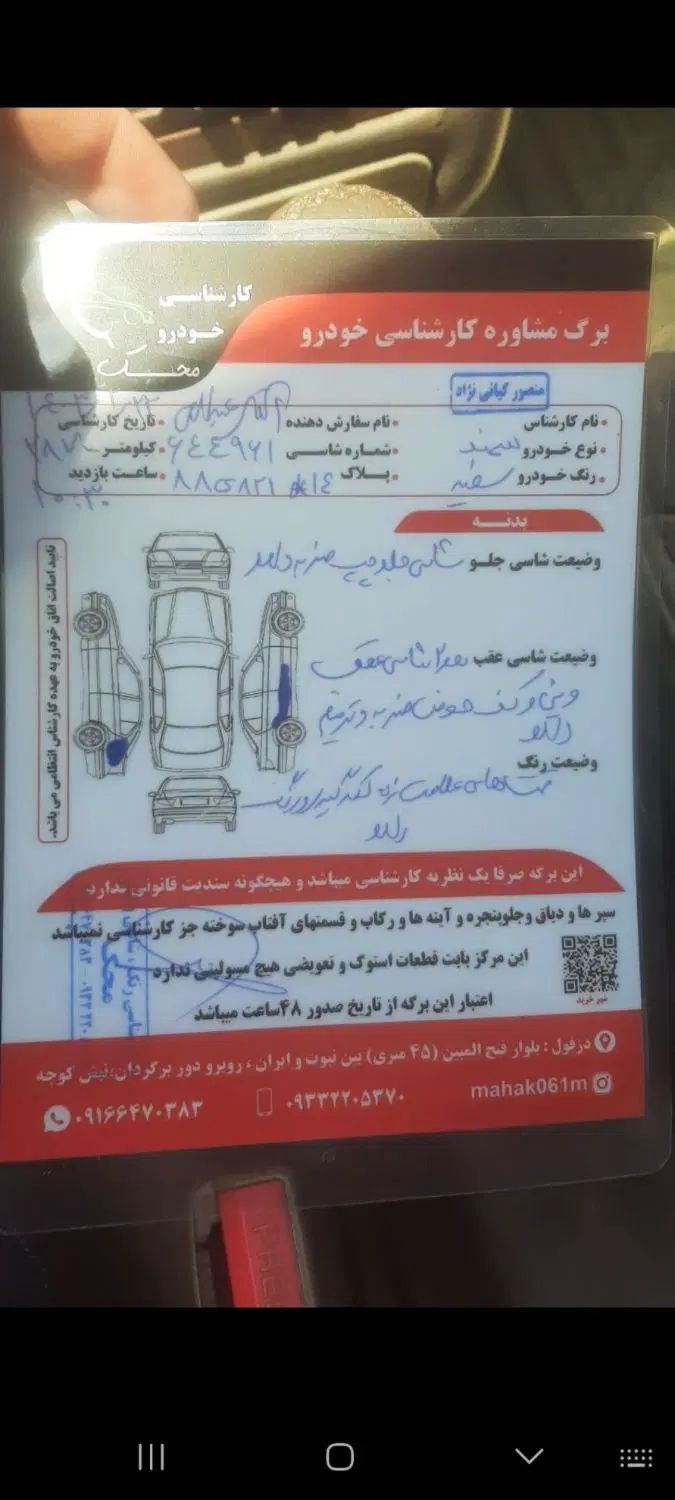 کارشناسی
خودرو
محک
برگ مشاوره کارشناسی خودرو
منصور کیانی نژاد
نام کارشناس
نام سفارش دهنده
تاریخ کارشناسی
نوع خودرو سمند
شماره شاسی ۶۴۴۹۶۱
کیلومتر
رنگ خودرو سفید
پلاک ۱۴ ۸۲۱ی۸۸
ساعت بازدید ۱۰:۳۰
بدنه
وضیعت شاسی جلو شاسی جلو چپ ضربه دارد
وضیعت شاسی عقب هر ۲ شاسی عقب
و سینی و کف صندوق ضربه و ترمیم
دارد
وضیعت رنگ
قسمتهای علامت زده لکه گیری و رنگ
دارد
تایید اصالت اتاق خودرو به عهده کارشناس انتظامی می باشد.
این برگه صرفا یک نظریه کارشناسی میباشد و هیچگونه سندیت قانونی ندارد
سپر ها و دیاق وجلوپنجره و آینه ها و رکاب و قسمتهای آفتاب سوخته جز کارشناسی نمیباشد
این مرکز بابت قطعات استوک و تعویضی هیچ مسولیتی ندارد
اعتبار این برگه از تاریخ صدور ۴۸ساعت میباشد
مهر خرید
محک
دزفول : بلوار فتح المبین (۴۵ متری) بین نبوت و ایران ، روبرو دور برگردان،نبش کوچه
mahak061m
۰۹۳۳۲۲۰۵۳۷۰
۰۹۱۶۶۴۷۰۳۸۳